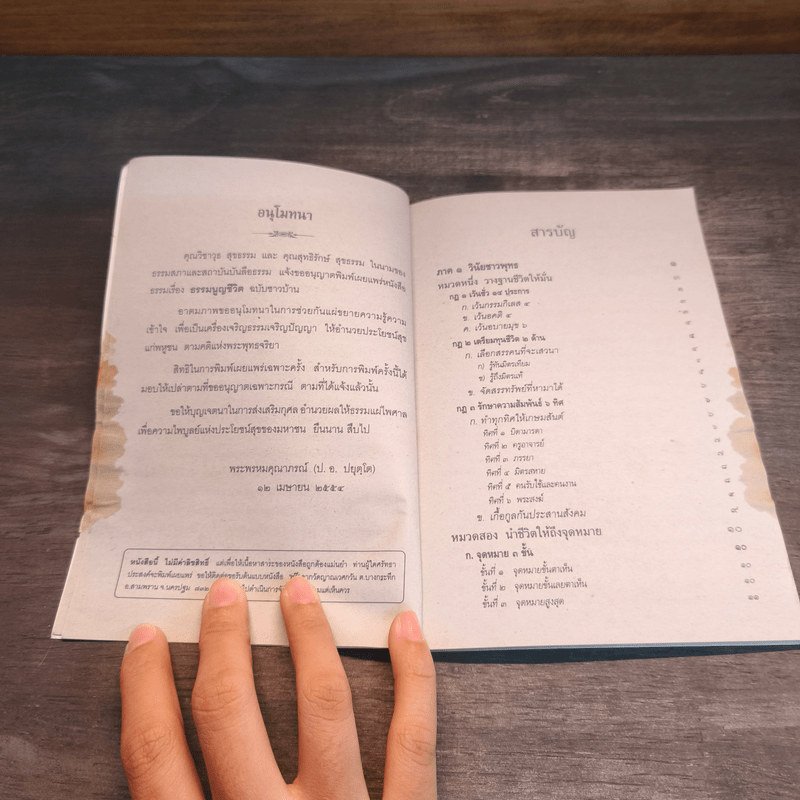 อนุโมทนา
คุณวิชาวุธ สุขธรรม และ คุณสุทธิรักษ์ สุขธรรม ในนามของ
ธรรมสภาและสถาบันบันลือธรรม แจ้งขออนุญาตพิมพ์เผยแพร่หนังสือ
ธรรมเรื่อง ธรรมนูญชีวิต ฉบับชาวบ้าน
อาตมภาพขออนุโมทนาในการช่วยกันแผ่ขยายความรู้ความ
เข้าใจ เพื่อเป็นเครื่องเจริญธรรมเจริญปัญญา ให้อำนวยประโยชน์สุข
แก่พหูชน ตามคติแห่งพระพุทธจริยา
สิทธิในการพิมพ์เผยแพร่เฉพาะครั้ง สำหรับการพิมพ์ครั้งนี้ได้
มอบให้เปล่าตามที่ขออนุญาตเฉพาะกรณี ตามที่ได้แจ้งแล้วนั้น
ขอให้บุญเจตนาในการส่งเสริมกุศล อำนวยผลให้ธรรมแผ่ไพศาล
เพื่อความไพบูลย์แห่งประโยชน์สุขของมหาชน ยืนนาน สืบไป
พระพรหมคุณาภรณ์ (ป. อ. ปยุตฺโต)
๑๒ เมษายน ๒๕๕๔
หนังสือนี้ ไม่มีค่าลิขสิทธิ์ แต่เพื่อให้เนื้อหาสาระของหนังสือถูกต้องแม่นยำ ท่านผู้ใดศรัทธา
ประสงค์จะพิมพ์เผยแพร่ ขอให้ติดต่อขอรับต้นแบบหนังสือ จากวัดญาณเวศกวัน ต.บางกระทึก
อ.สามพราน จ.นครปฐม ไปดำเนินการ
สารบัญ
ภาค ๑ วินัยชาวพุทธ ๑
หมวดหนึ่ง วางฐานชีวิตให้มั่น
กฎ ๑ เว้นชั่ว ๑๔ ประการ
ก. เว้นกรรมกิเลส ๔
ข. เว้นอคติ ๔
ค. เว้นอบายมุข ๖
กฎ ๒ เตรียมทุนชีวิต ๒ ด้าน
ก. เลือกสรรคนที่จะเสวนา
ก) รู้ทันมิตรเทียม
ข) รู้ถึงมิตรแท้
ข. จัดสรรทรัพย์ที่หามาได้
กฎ ๓ รักษาความสัมพันธ์ ๖ ทิศ
ก. ทำทุกทิศให้เกษมสันต์
ทิศที่ ๑ บิดามารดา
ทิศที่ ๒ ครูอาจารย์
ทิศที่ ๓ ภรรยา
ทิศที่ ๔ มิตรสหาย
ทิศที่ ๕ คนรับใช้และคนงาน
ทิศที่ ๖ พระสงฆ์
ข. เกื้อกูลกันประสานสังคม
หมวดสอง นำชีวิตให้ถึงจุดหมาย ๑๐
ก. จุดหมาย ๓ ขั้น ๑๐
ขั้นที่ ๑ จุดหมายขั้นตาเห็น ๑๐
ขั้นที่ ๒ จุดหมายขั้นเลยตาเห็น
ขั้นที่ ๓ จุดหมายสูงสุด ๑๑